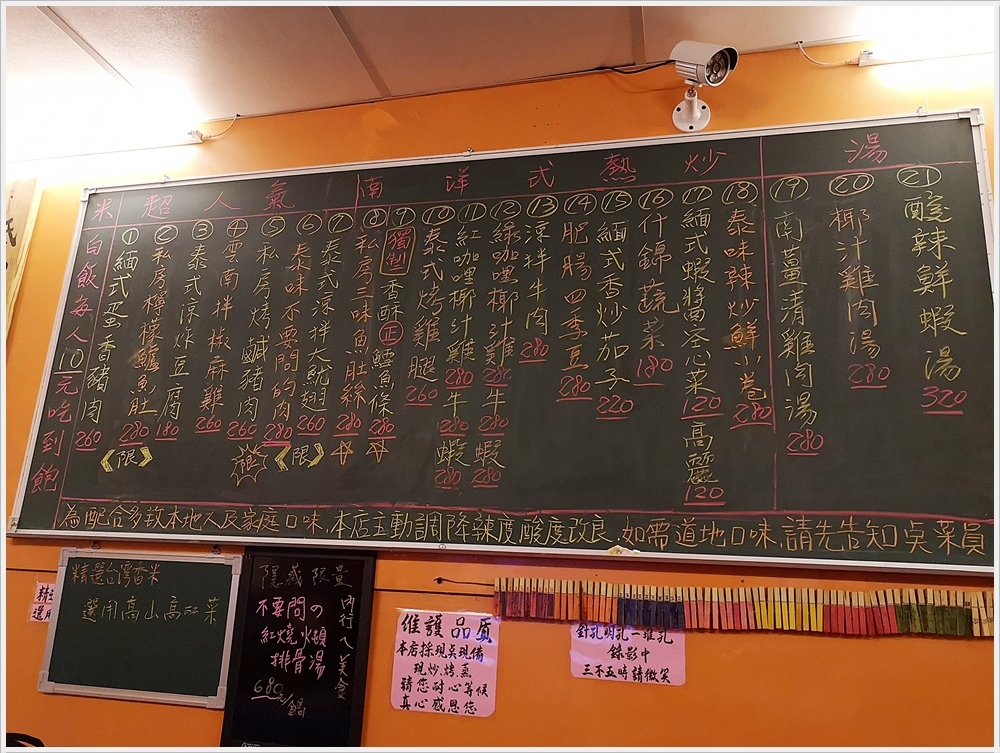 米
超人氣
南洋式熱炒
湯
白飯每人10元吃到飽
①緬式蛋香豬肉 260
②私房檸檬鱸魚肚 280 《限》
③泰式涼炸豆腐 180
④雲南拌椒麻雞 260
⑤私房烤鹹豬肉 260 限
⑥泰味不要問的肉 280
⑦泰式涼拌大魷翅 260 《限》
⑧私房三味魚肚絲 280
⑨獨制香酥正鱈魚條 280
⑩泰式烤雞腿 260
⑪紅咖哩椰汁雞 280 牛 280 蝦 280
⑫綠咖哩椰汁雞 280 牛 280 蝦 280
⑬涼拌牛肉 280
⑭肥腸四季豆 280
⑮緬式香炒茄子 220
⑯什錦蔬菜 180
⑰緬式蝦醬空心菜 120 高麗 120
⑱泰味辣炒鮮小卷 280
⑲南薑清雞肉湯 280
⑳椰汁雞肉湯 280
㉑酸辣鮮蝦湯 320
為配合多數本地人及家庭口味,本店主動調降辣度酸度改良,如需道地口味,請先告知点菜員
精選台灣香米
選用高山高麗菜
隱藏限量
內行ㄟ美食
不要問の
紅燒火頭
排骨湯
680元/鍋
維護品質
本店採現点現備
現炒.烤.蒸
請您耐心等候
真心感恩您
針孔明孔一堆孔
錄影中
三不五時請微笑